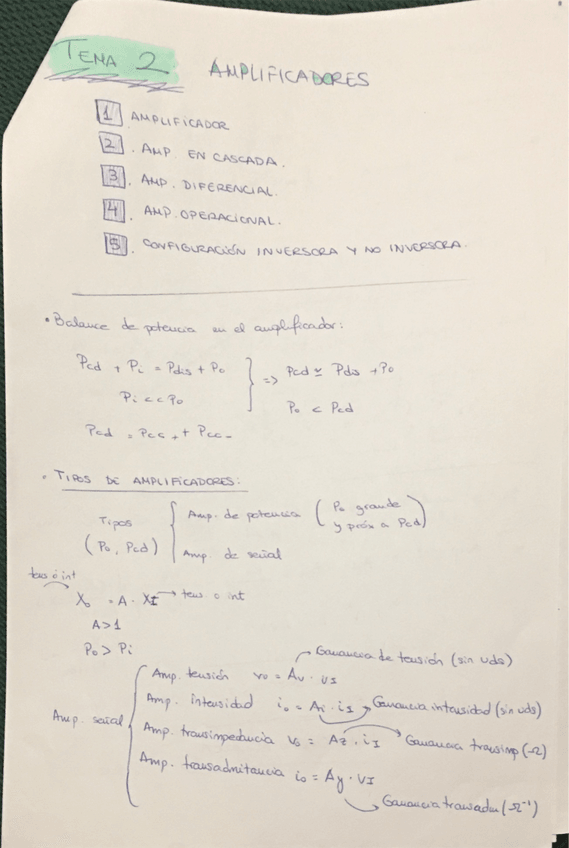 TEMA 2 AMPLIFICADORES
1 AMPLIFICADOR
2. AMP. EN CASCADA.
3. AMP. DIFERENCIAL.
4. AMP. OPERACIONAL.
5. CONFIGURACIÓN INVERSORA Y NO INVERSORA.
• Balance de potencia en el amplificador:
Pcd + Pi = Pdis + Po } => Pcd ≃ Pdis + Po
Pi << Po Po < Pcd
Pcd = Pcc+ + Pcc-
• TIPOS DE AMPLIFICADORES:
Tipos (Po, Pcd) { Amp. de potencia (Po grande y próx a Pcd)
Amp. de señal
tens ó int
Xo = A · XI → tens o int
A>1
Po > Pi
Amp. señal { Amp. tensión vo = Av · vI → Ganancia de tensión (sin uds)
Amp. intensidad io = Ai · iI → Ganancia intensidad (sin uds)
Amp. transimpedancia vo = Az · iI → Ganancia transimp (Ω)
Amp. transadmitancia io = Ay · vI
→ Ganancia transadm (Ω⁻¹)